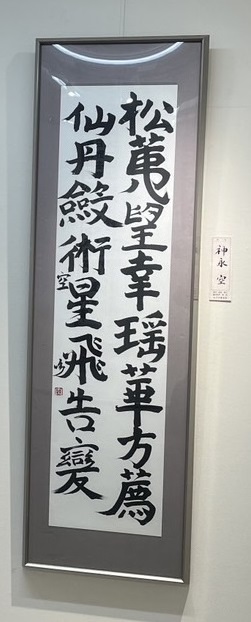 松萬望幸瑶華方薦
仙丹斂術星飛告變
空
神永 空